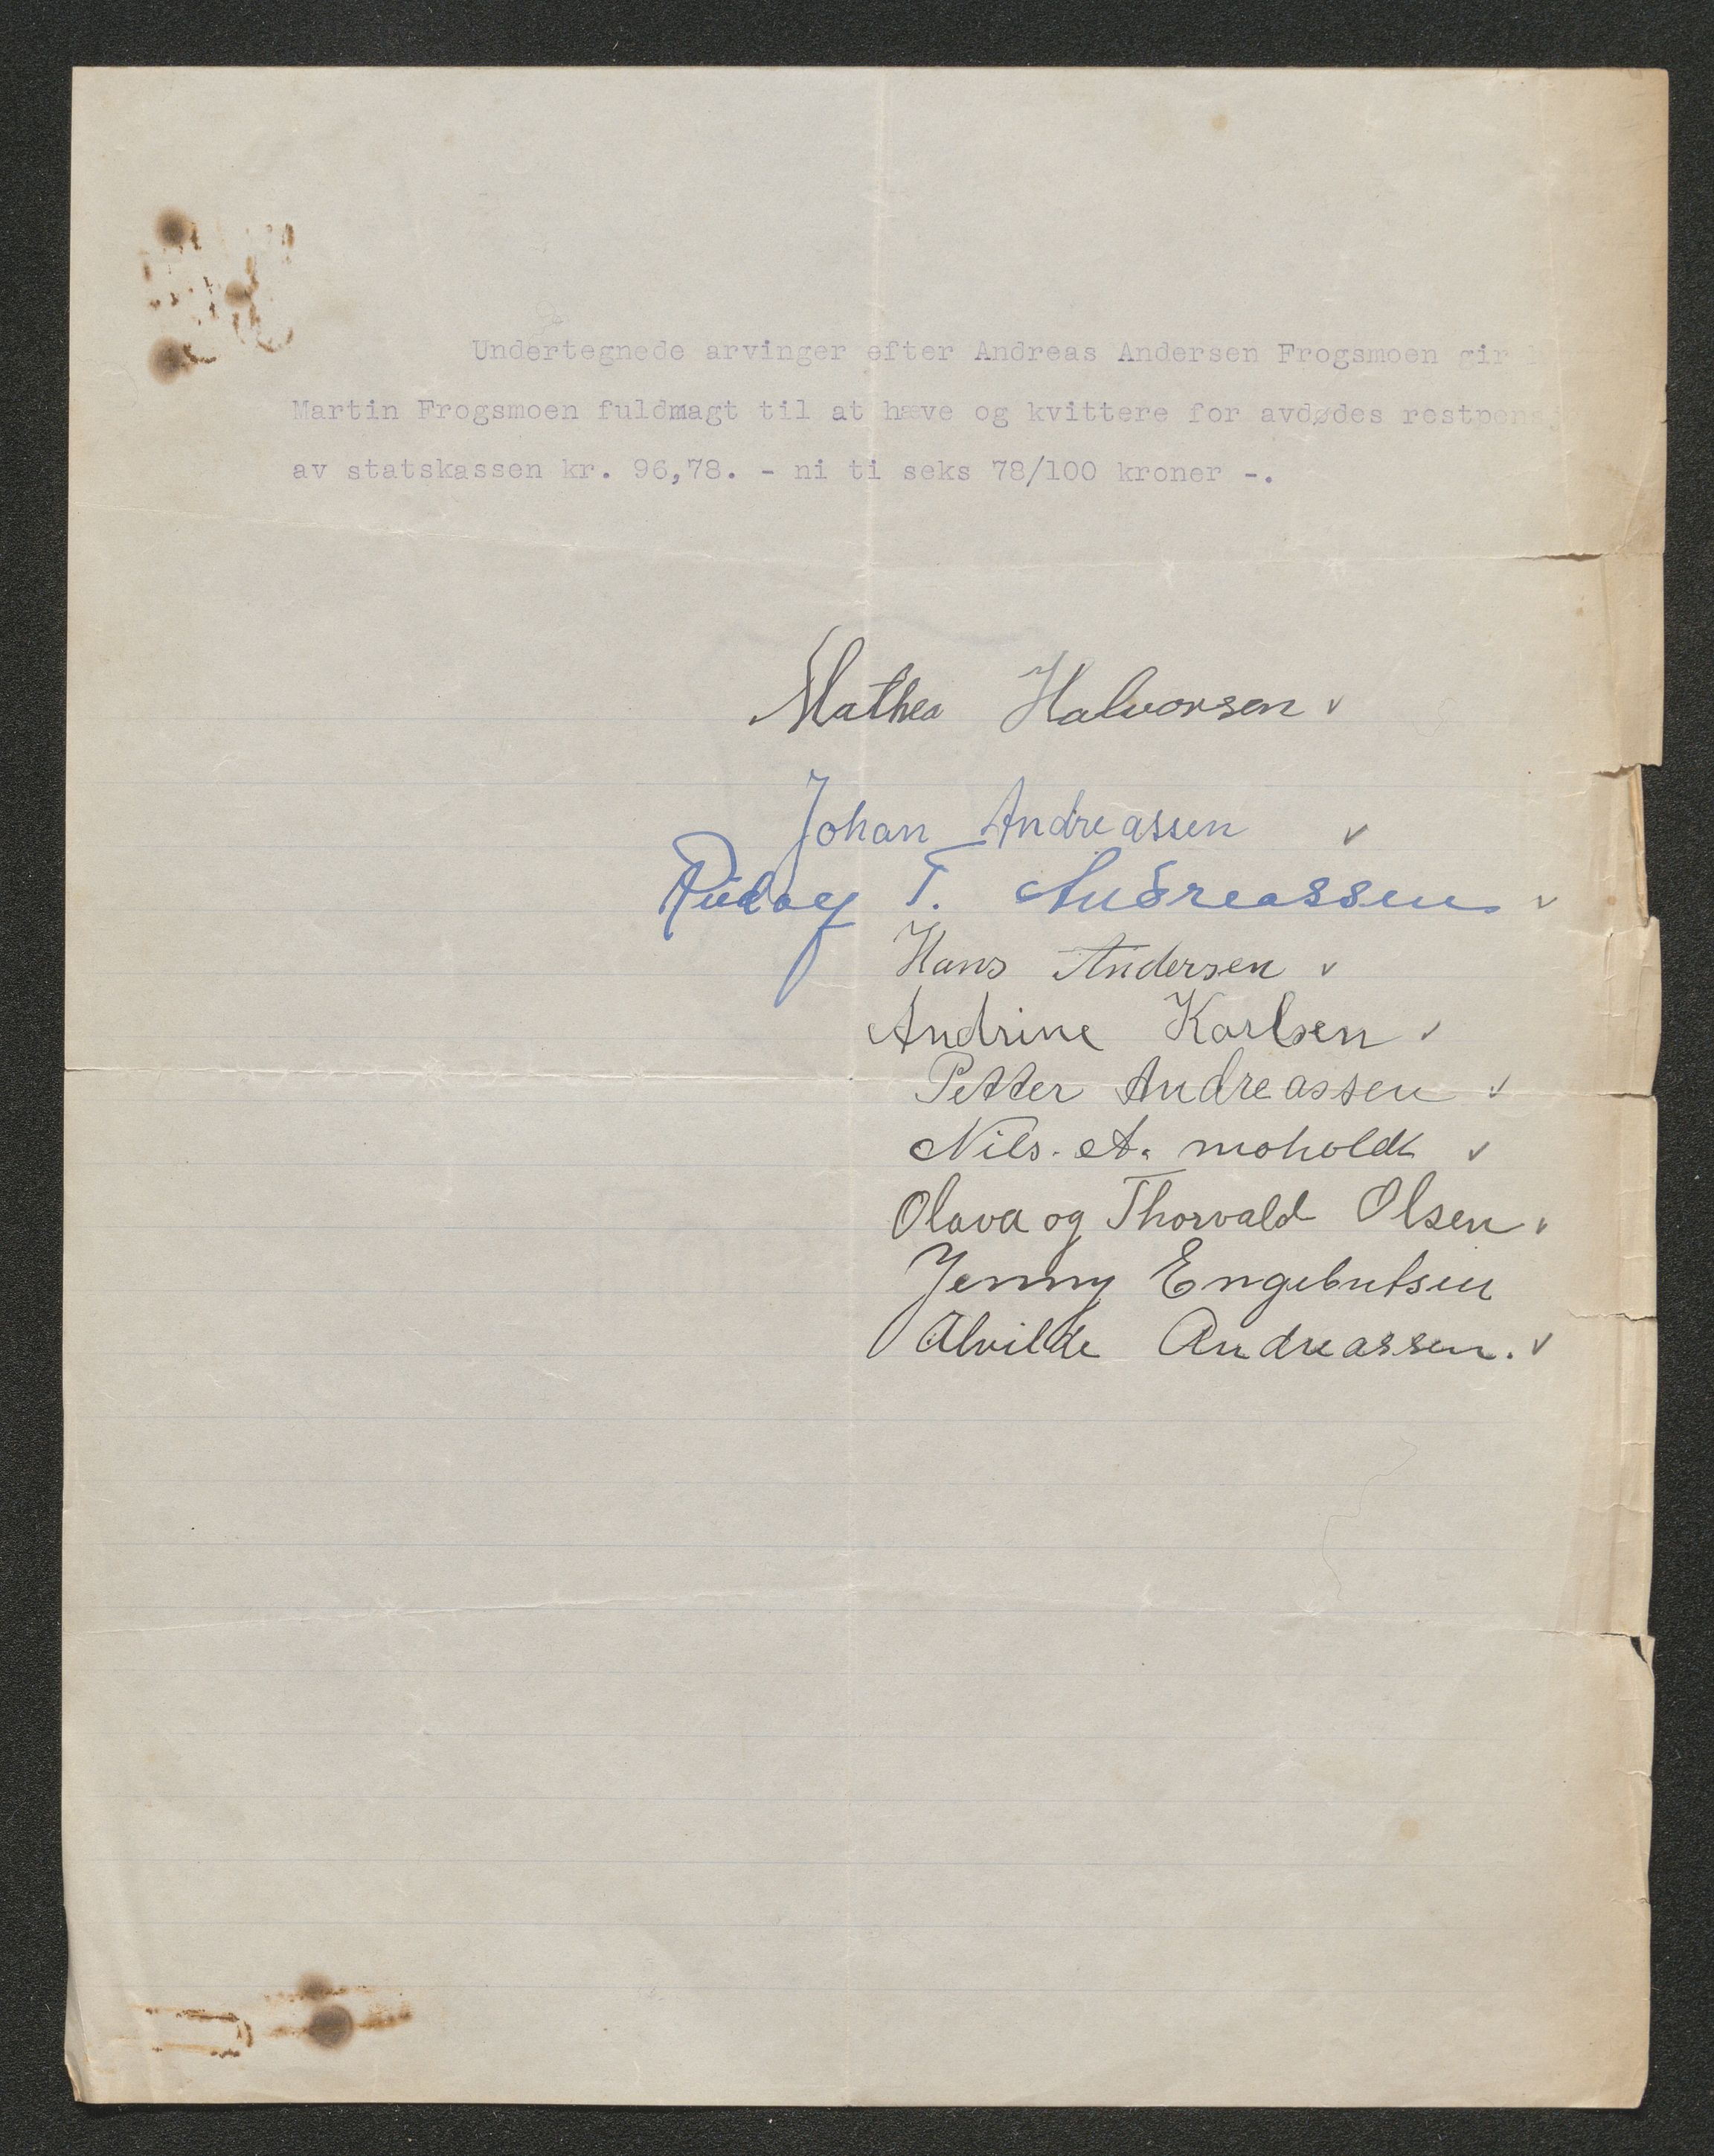 Undertegnede arvinger efter Andreas Andersen Frogsmoen gir
Martin Frogsmoen fuldmagt til at hæve og kvittere for avdødes restpens
av statskassen kr. 96,78. - ni ti seks 78/100 kroner -.
Mathea Halvorsen
Johan Andreassen
T. Andreassen
Hans Andersen
Andrine Karlsen
Petter Andreassen
Nils. A. moholdt
Olava og Thorvald Olsen
Jenny Engebretsen
Alvilde Andreassen.